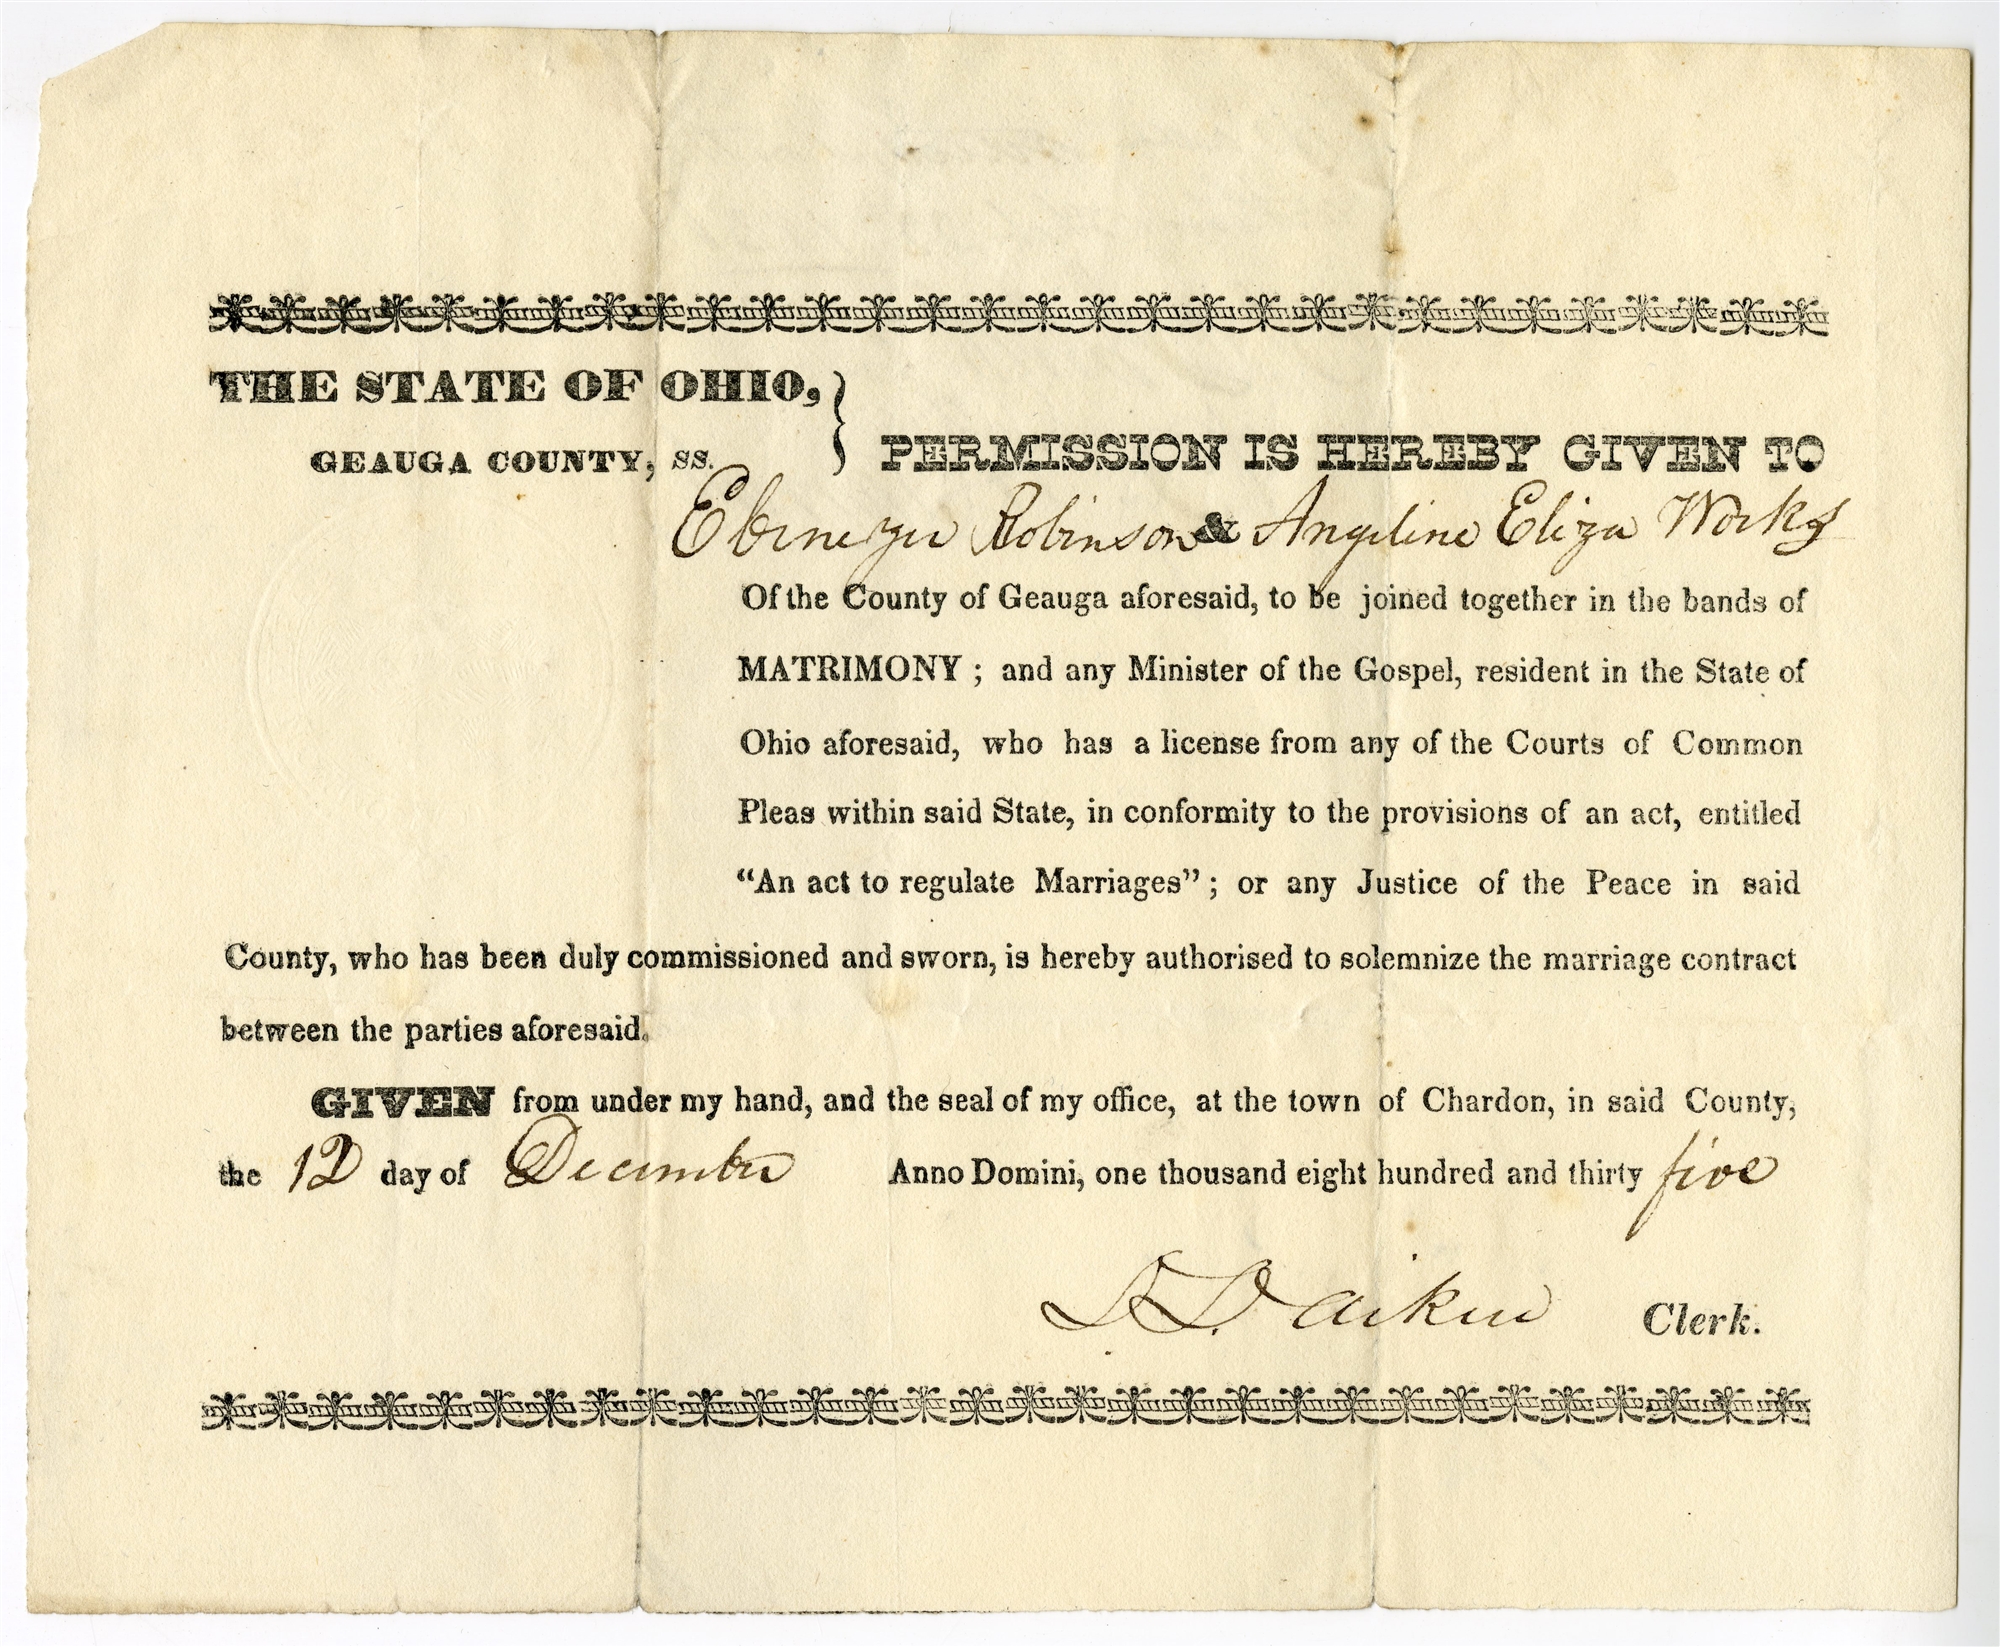 THE STATE OF OHIO,
GEAUGA COUNTY, SS. } PERMISSION IS HEREBY GIVEN TO
Ebenezer Robinson & Angeline Eliza Works
Of the County of Geauga aforesaid, to be joined together in the bands of
MATRIMONY; and any Minister of the Gospel, resident in the State of
Ohio aforesaid, who has a license from any of the Courts of Common
Pleas within said State, in conformity to the provisions of an act, entitled
“An act to regulate Marriages”; or any Justice of the Peace in said
County, who has been duly commissioned and sworn, is hereby authorised to solemnize the marriage contract
between the parties aforesaid.
GIVEN from under my hand, and the seal of my office, at the town of Chardon, in said County,
the 12 day of December Anno Domini, one thousand eight hundred and thirty five
D. D. Aiken Clerk.